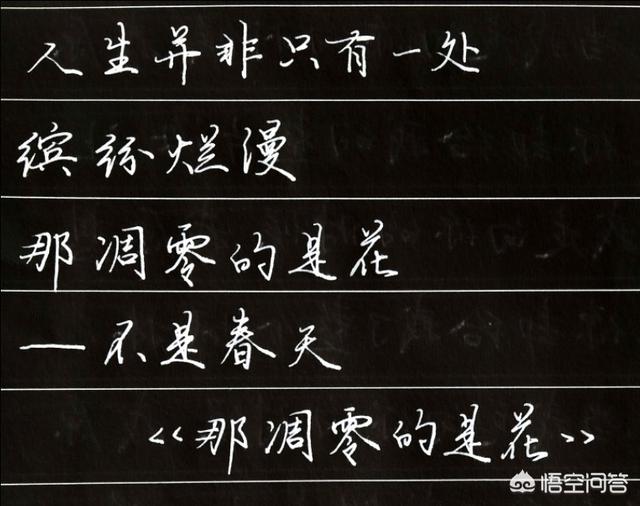 人生并非只有一处
缤纷烂漫
那凋零的是花
—不是春天
<<那凋零的是花>>
悟空问答